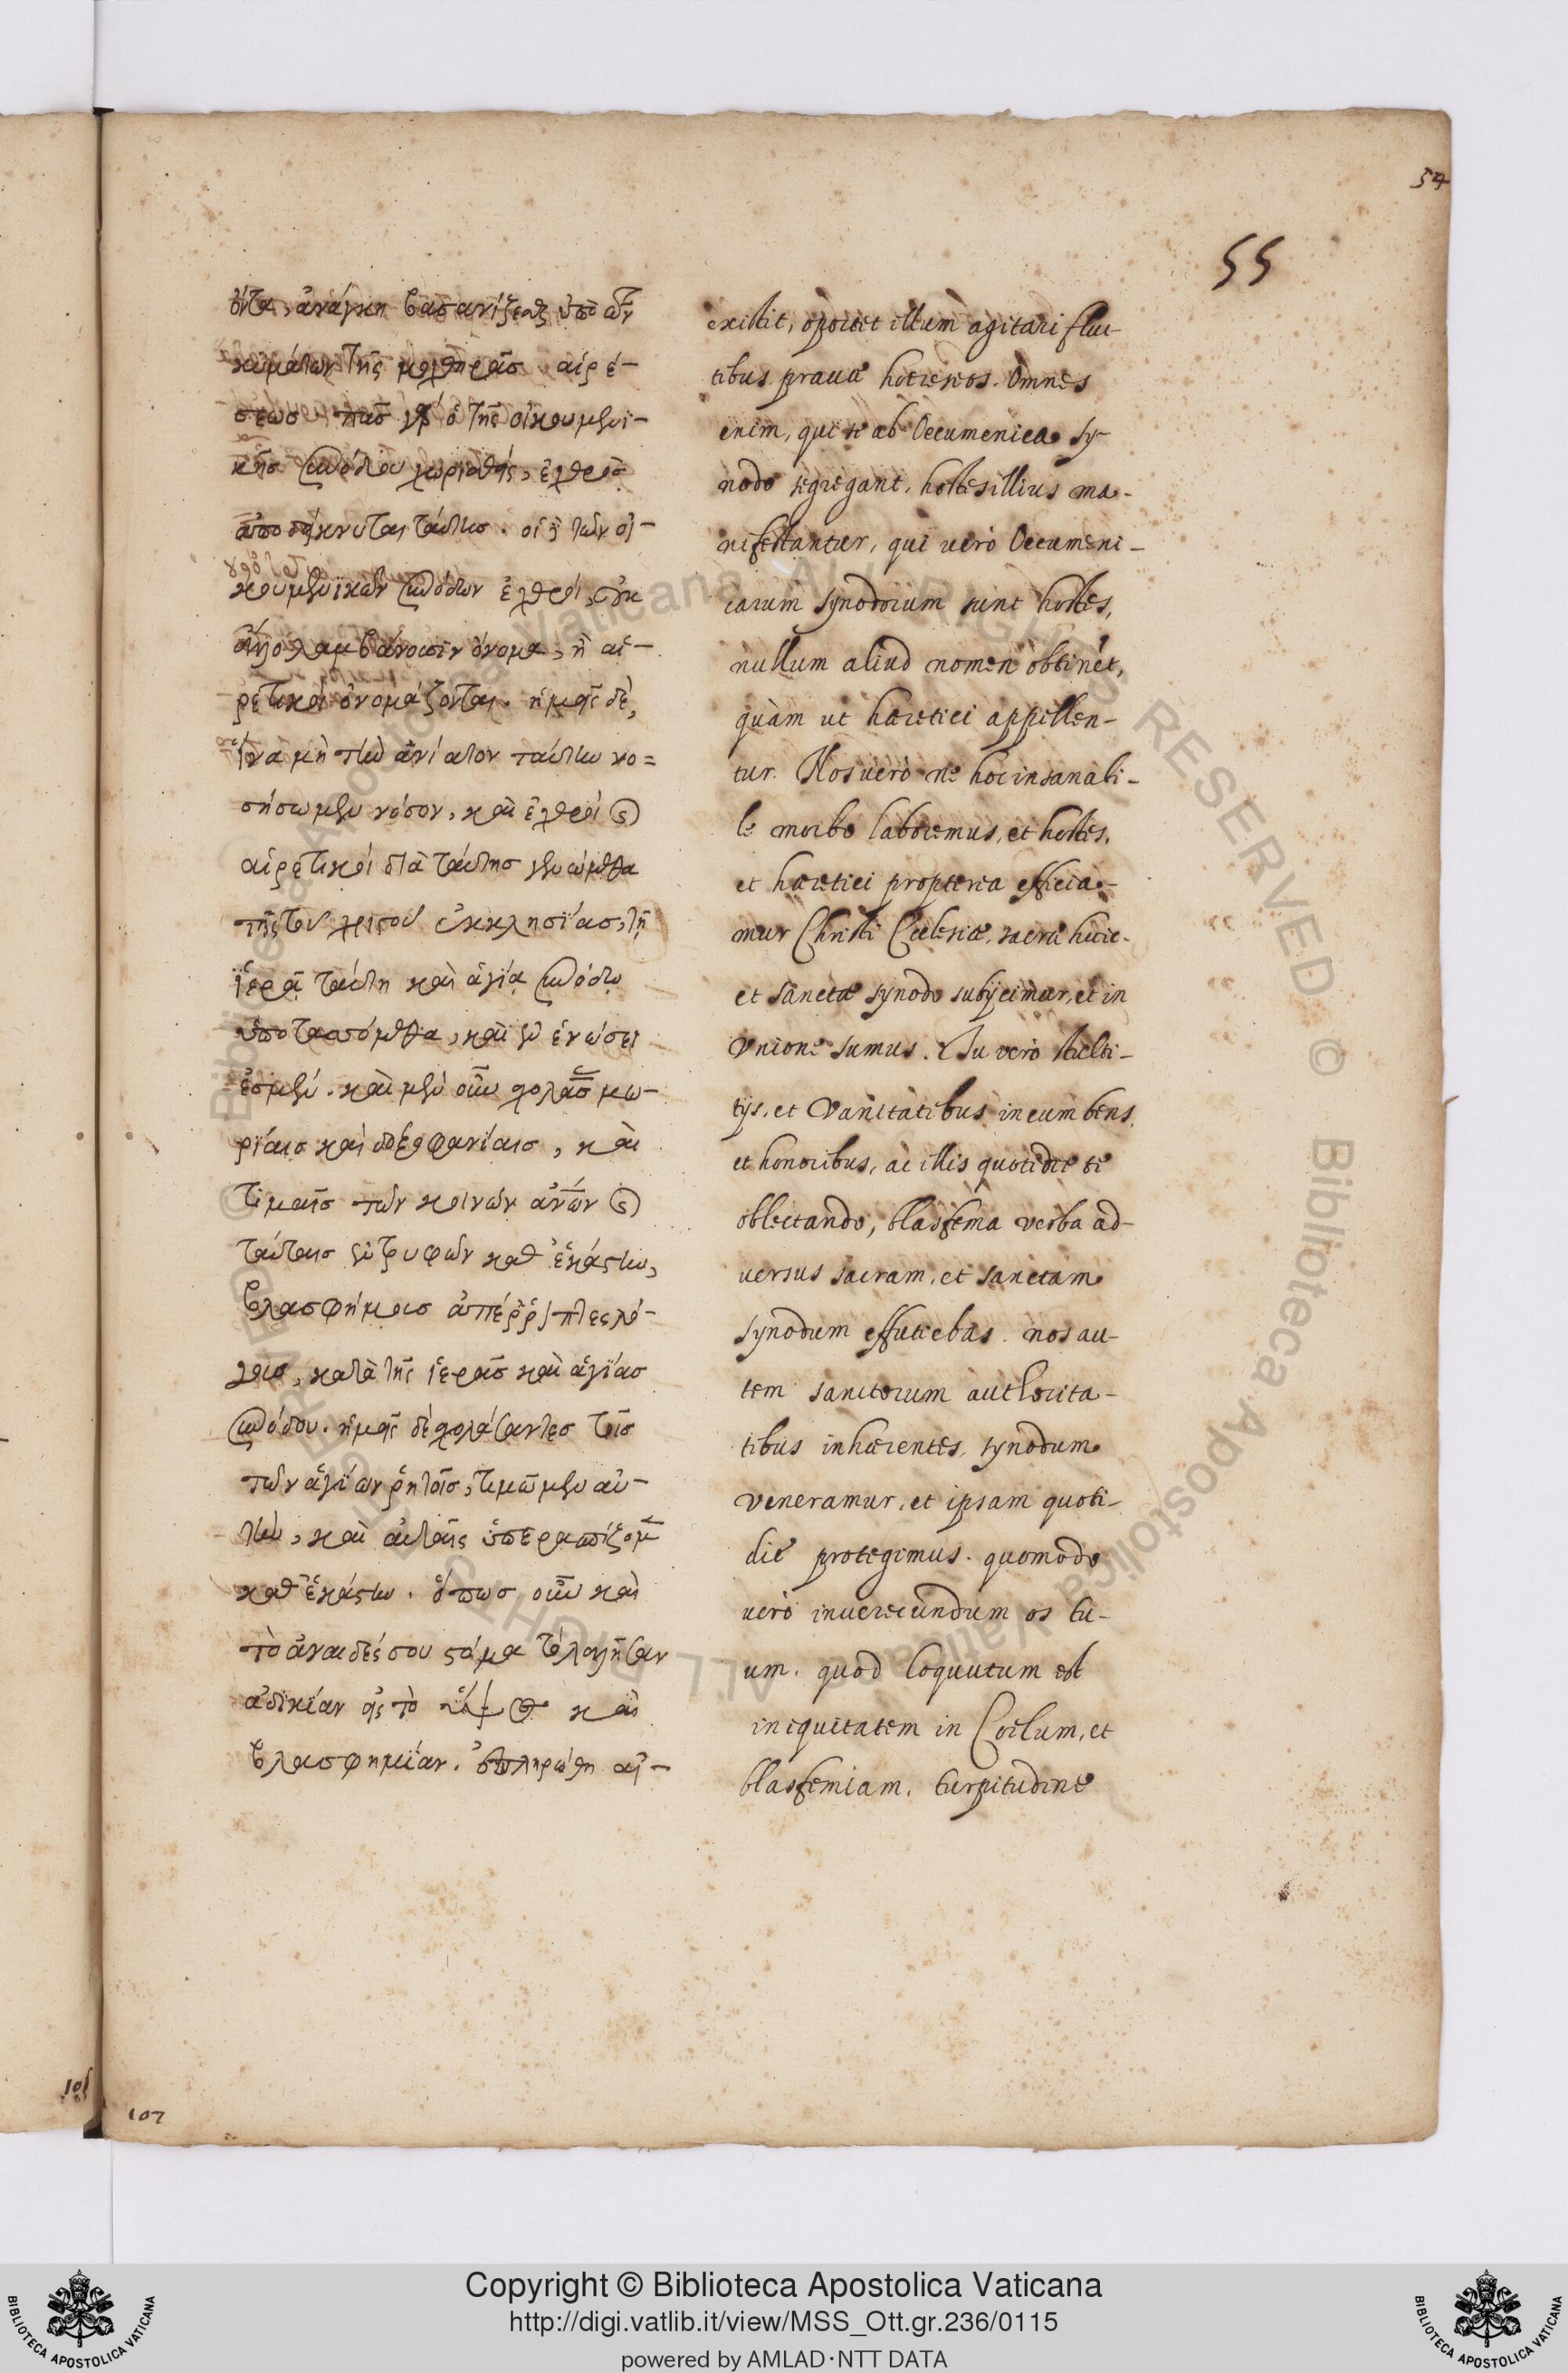 54
55
ὄντα, ἀνάγκη βασανίζεσθαι ὑπὸ τῶν
κυμάτων τῆς μοχθηρᾶσ αἱρέ-
σεωσ πᾶσ γὰρ ὁ τῆς οἰκουμενι-
κῆσ συνόδου χωρισθεὶς, ἐχθρὸσ
ἀποδείκνυται ταύτησ. οἱ δὲ τῶν οἰ-
κουμενικῶν συνόδων ἐχθροί, οὐκ
ἄλλο λαμβάνουσιν ὄνομα, ἢ αἱ-
ρετικοὶ ὀνομάζονται. ἡμεῖς δὲ,
ἵνα μὴ τὴν ἀνίατον ταύτην νο=
σήσωμεν νόσον, καὶ ἐχθροί καὶ
αἱρετικοί διὰ ταύτησ γενώμεθα
τῆς τοῦ χριστοῦ ἐκκλησίασ, τῇ
ἱερᾷ ταύτη καὶ ἁγία συνόδω
ὑποτασσόμεθα, καὶ ἐν ἑνώσει
ἐσμέν. καὶ μὲν οὖν σχολάσας μω-
ρίαισ καὶ κενοφανίαισ, καὶ
τιμαῖσ τῶν κοινῶν ἀνῶν καὶ
ταύταισ ἐντρυφῶν καθ' ἑκάστην,
βλασφήμοισ ἀπέρριπτες λό-
γοισ, κατὰ τῆς ἱερᾶσ καὶ ἁγίασ
συνόδου. ἡμεῖς δὲ σχολάσαντεσ τοῖσ
τῶν ἁγίων ῥητοῖσ, τιμῶμεν αὐ-
τὴν, καὶ αὐτῆς ὑπερασπίζομεν
καθ' ἑκάστην. ὅπωσ οὖν καὶ
τὸ ἀναιδές σου στόμα τὸ λαλῆσαν
ἀδικίαν εἰς τὸ ὕψος καὶ
βλασφημίαν. ἐπληρώθη αἰ-
existit, oportet illum agitari fluc-
tibus prauæ hæreseos. Omnes
enim, qui se ab Oecumenica sy-
nodo segregant, hostes illius ma-
nifestantur, qui uerò Oecumeni-
carum synodorum sunt hostes,
nullum aliud nomen obtinet,
quàm ut hæretici appellen-
tur. Nos uerò ne hoc insanabi-
le morbo laboremus, et hostes,
et hæretici propterea efficia-
mur Christi Ecclesiæ, sacræ huic
et sanctæ synodo subijcimur, et in
Vnione sumus. Tu verò stulti-
tijs, et Vanitatibus incumbens,
et honoribus, ac illis quotidie te
oblectando, blasfema verba ad-
uersus sacram, et sanctam
synodum effutiebas. nos au-
tem sanctorum authorita-
tibus inhærentes, synodum
veneramur, et ipsam quoti-
die protegimus. quomodo
uerò inuerecundum os tu-
um, quod loquutum est
iniquitatem in Coelum, et
blasfemiam, turpitudine
101
107
Copyright © Biblioteca Apostolica Vaticana
http://digi.vatlib.it/view/MSS_Ott.gr.236/0115
powered by AMLAD·NTT DATA